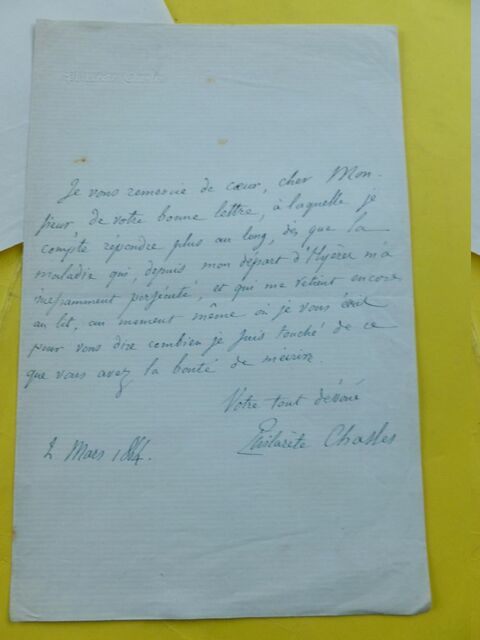 Je vous remercie de cœur, cher Mon-
sieur, de votre bonne lettre, à laquelle je
compte répondre plus au long, dès que la
maladie qui, depuis mon départ d'Hyères m'a
incessamment persécuté, et qui me retient encore
au lit, au moment même où je vous écris
pour vous dire combien je suis touché de ce
que vous avez la bonté de m'écrire
Votre tout dévoué
Philarète Chasles
2 Mars 1864.